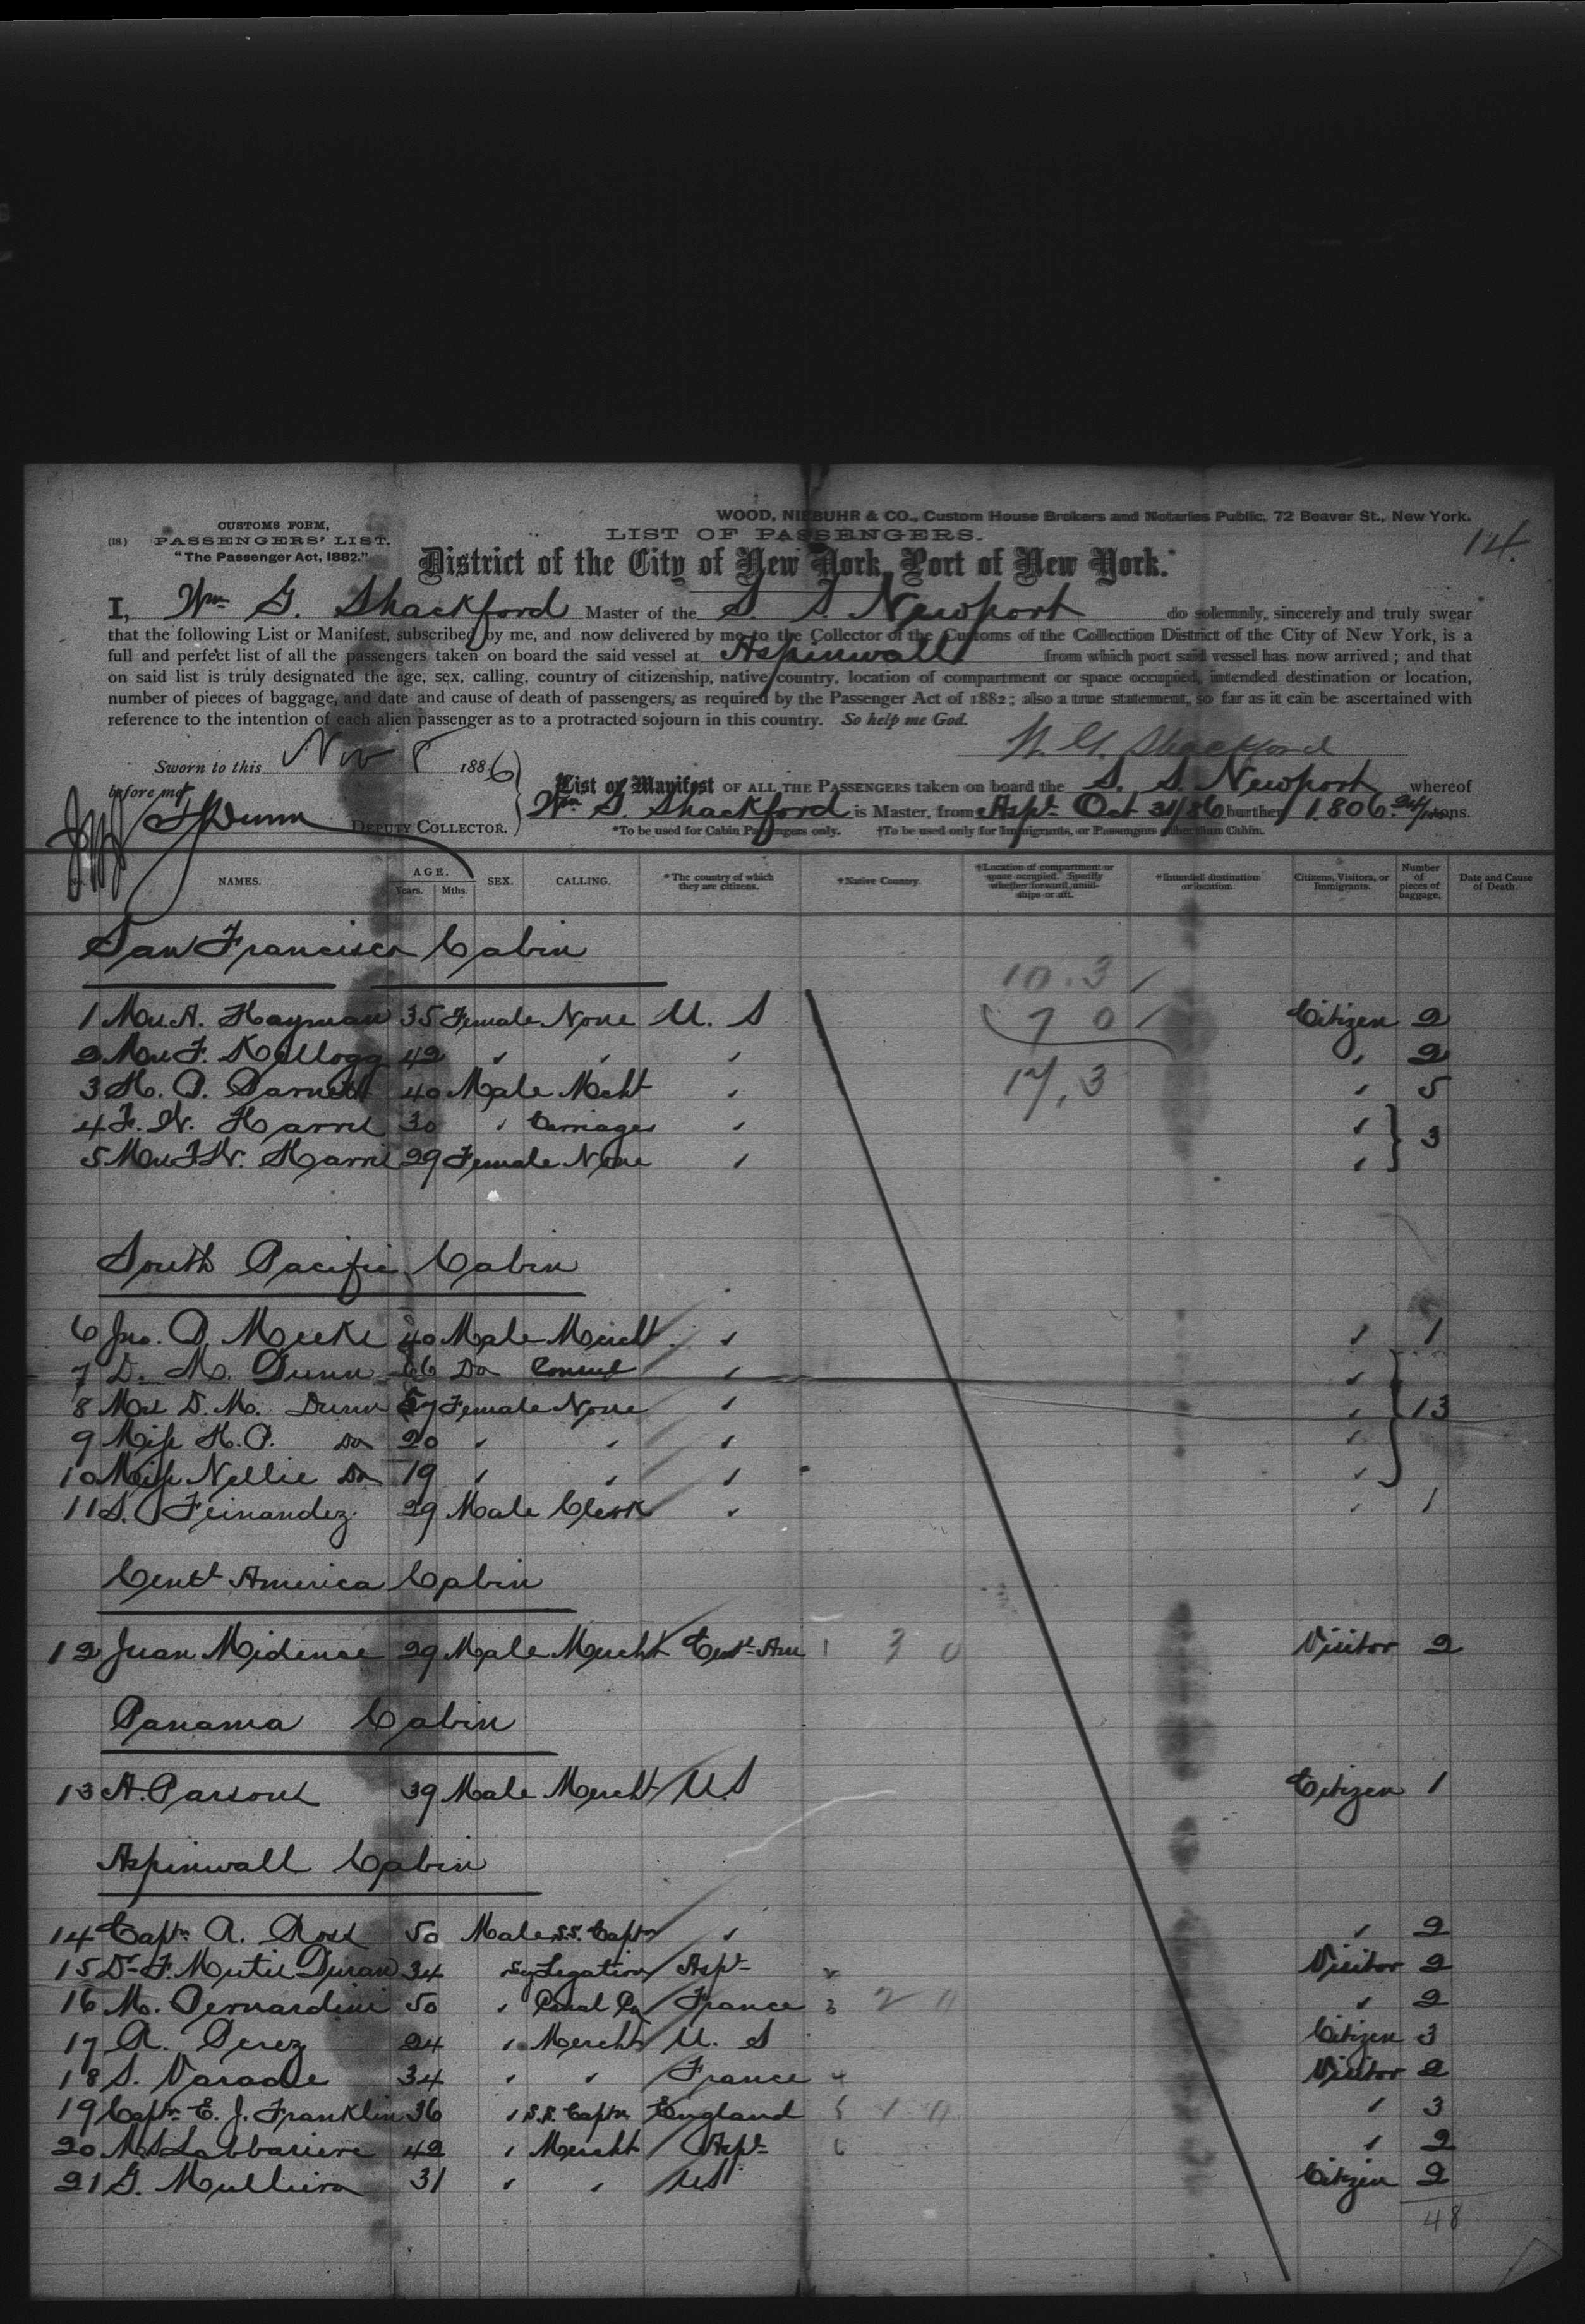 WOOD, NIEBUHR & CO., Custom House Brokers and Notaries Public, 72 Beaver St., New York.
CUSTOMS FORM,
LIST OF PASSENGERS.
14.
(18) PASSENGERS' LIST.
"The Passenger Act, 1882."
District of the City of New York, Port of New York.
I, Wm G. Shackford Master of the S. S. Newport do solemnly, sincerely and truly swear
that the following List or Manifest, subscribed by me, and now delivered by me to the Collector of the Customs of the Collection District of the City of New York, is a
full and perfect list of all the passengers taken on board the said vessel at Aspinwall from which port said vessel has now arrived; and that
on said list is truly designated the age, sex, calling, country of citizenship, native country, location of compartment or space occupied, intended destination or location,
number of pieces of baggage, and date and cause of death of passengers, as required by the Passenger Act of 1882; also a true statement, so far as it can be ascertained with
reference to the intention of each alien passenger as to a protracted sojourn in this country. So help me God.
W. G. Shackford
Sworn to this Nov 8 1886
before me
Dunn DEPUTY COLLECTOR.
List or Manifest OF ALL THE PASSENGERS taken on board the S. S. Newport whereof
Wm G. Shackford is Master, from Aspl Oct 31/86 burthen 1806 tons.
*To be used for Cabin Passengers only. †To be used only for Immigrants, or Passengers other than Cabin.
No. NAMES. AGE. Years. Mths. SEX. CALLING. *The country of which they are citizens. *Native Country. †Location of compartment or space occupied. Specify whether forward, amidships or aft. *Intended destination or location. Citizens, Visitors, or Immigrants. Number of pieces of baggage. Date and Cause of Death.
San Francisco Cabin
10.3
1 Mrs A. Hayman 35 Female None U. S 7 0 Citizen 2
2 Mrs F. Kellogg 42 " " " " 2
3 H. P. 40 Male Mcht " 17.3 " 5
4 F. W. Harris 30 " Carriages " " 3
5 Mrs F. W. Harris 29 Female None " "
South Pacific Cabin
6 Jno. P. Meeke 40 Male Mercht " " 1
7 D. M. Dunn 66 Do Consul " "
8 Mrs D. M. Dunn 57 Female None " " 13
9 Miss H. P. Do 20 " " " "
10 Miss Nellie Do 19 " " " "
11 S. Feinandez 29 Male Clerk " " 1
Centl America Cabin
12 Juan Midense 29 Male Mercht Centl Am 1 3 0 Visitor 2
Panama Cabin
13 A. Parsons 39 Male Mercht U.S Citizen 1
Aspinwall Cabin
14 Captn A. Ross 50 Male S.S. Captn " " 2
15 Dr F. Mutis Duran 34 Legation Aspl 2 Visitor 2
16 M. Bernardini 50 " Canal Co France 3 2 0 " 2
17 R. Perez 24 " Mercht U. S Citizen 3
18 S. Varade 34 " " France 4 Visitor 2
19 Captn E. J. Franklin 36 " S.S. Captn England 5 " 3
20 42 " Mercht Aspl 6 " 2
21 G. 31 " " US Citizen 2
48